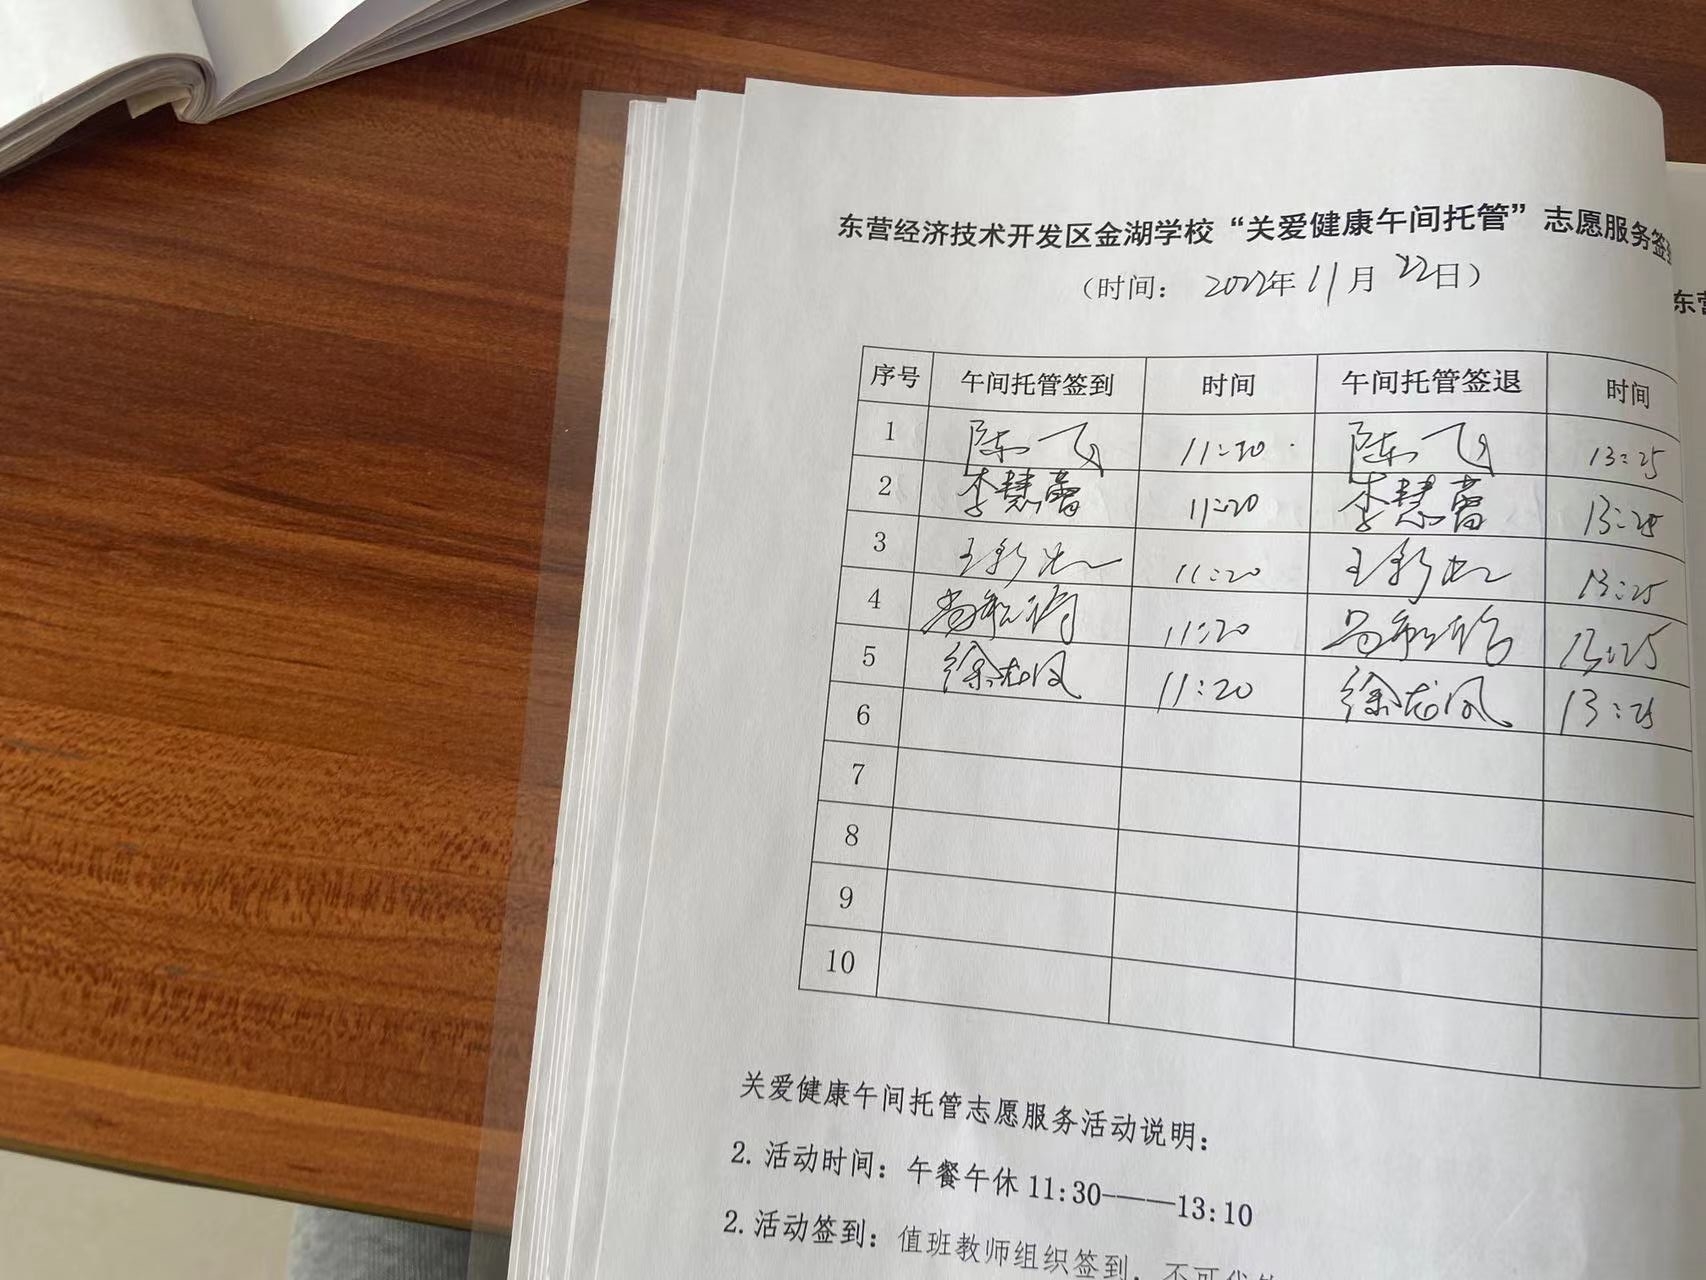 东营经济技术开发区金湖学校“关爱健康午间托管”志愿服务签
（时间： 2022年 11月 22日）
东营
序号 午间托管签到 时间 午间托管签退 时间
1 陈飞 11:20 陈飞 13:25
2 李慧蕾 11:20 李慧蕾 13:25
3 11:20 13:25
4 11:20 13:25
5 徐龙凤 11:20 徐龙凤 13:25
6
7
8
9
10
关爱健康午间托管志愿服务活动说明：
2. 活动时间：午餐午休 11:30——13:10
2. 活动签到：值班教师组织签到，不可代